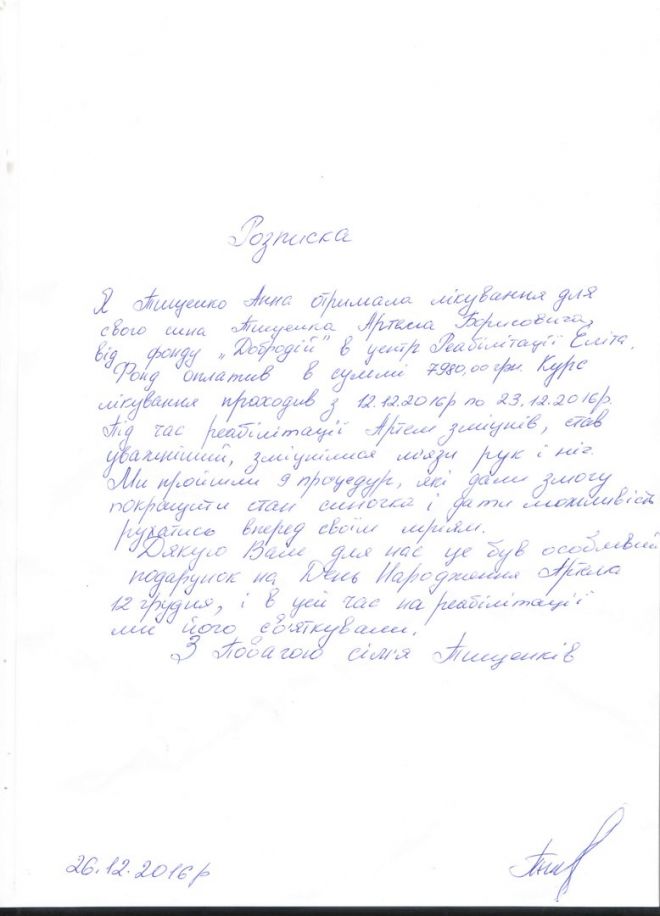 Розписка
Я Тищенко Анна отримала лікування для
свого сина Тищенка Артема Борисовича,
від фонду „Добродій" в центр Реабілітації Еліта.
Фонд оплатив в суммі 7980,00 грн. Курс
лікування проходив з 12.12.2016р по 23.12.2016р.
Під час реабілітації Артем зміцнів, став
уважніший, зміцнілися мязи рук і ніг.
Ми пройшли 9 процедур, які дали змогу
покращити стан синочка і дати можливість
рухатись вперед своїм мріям.
Дякую Вам для нас це був особливий
подарунок на День Народження Артема
12 грудня, і в цей час на реабілітації
ми його святкували.
З Повагою сімя Тищенків
26.12.2016р